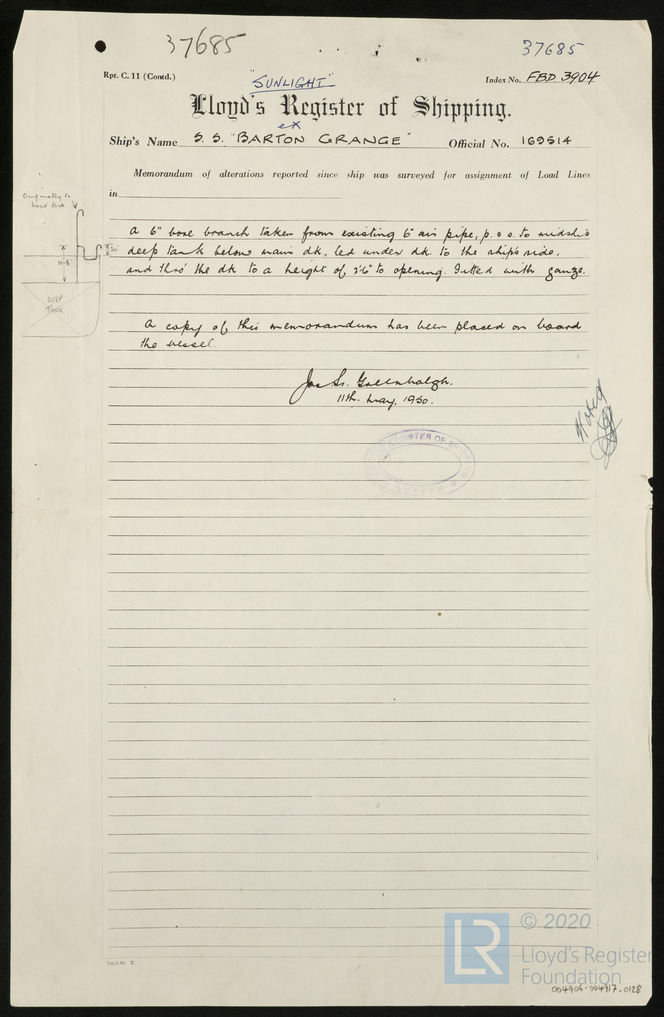 37685
37685
Rpt. C. 11 (Contd.)
"SUNLIGHT"
Index No. FBD.3904
Lloyd's Register of Shipping.
ex
Ship's Name S. S. "BARTON GRANGE" Official No. 169514
Memorandum of alterations reported since ship was surveyed for assignment of Load Lines
in
Originally to
boat deck
A 6" bore branch taken from existing 6" air pipe, p. & s. to midship
deep tank below main dk, led under dk. to the ship's side,
and thro' the dk to a height of to opening. Fitted with gauze.
DEEP
TANK
A copy of this memorandum has been placed on board
the vessel.
Greenhalgh.
11th. May, 1950.
Noted
REGISTER OF
© 2020
LR
Lloyd's Register
Foundation
004906-004917-0128